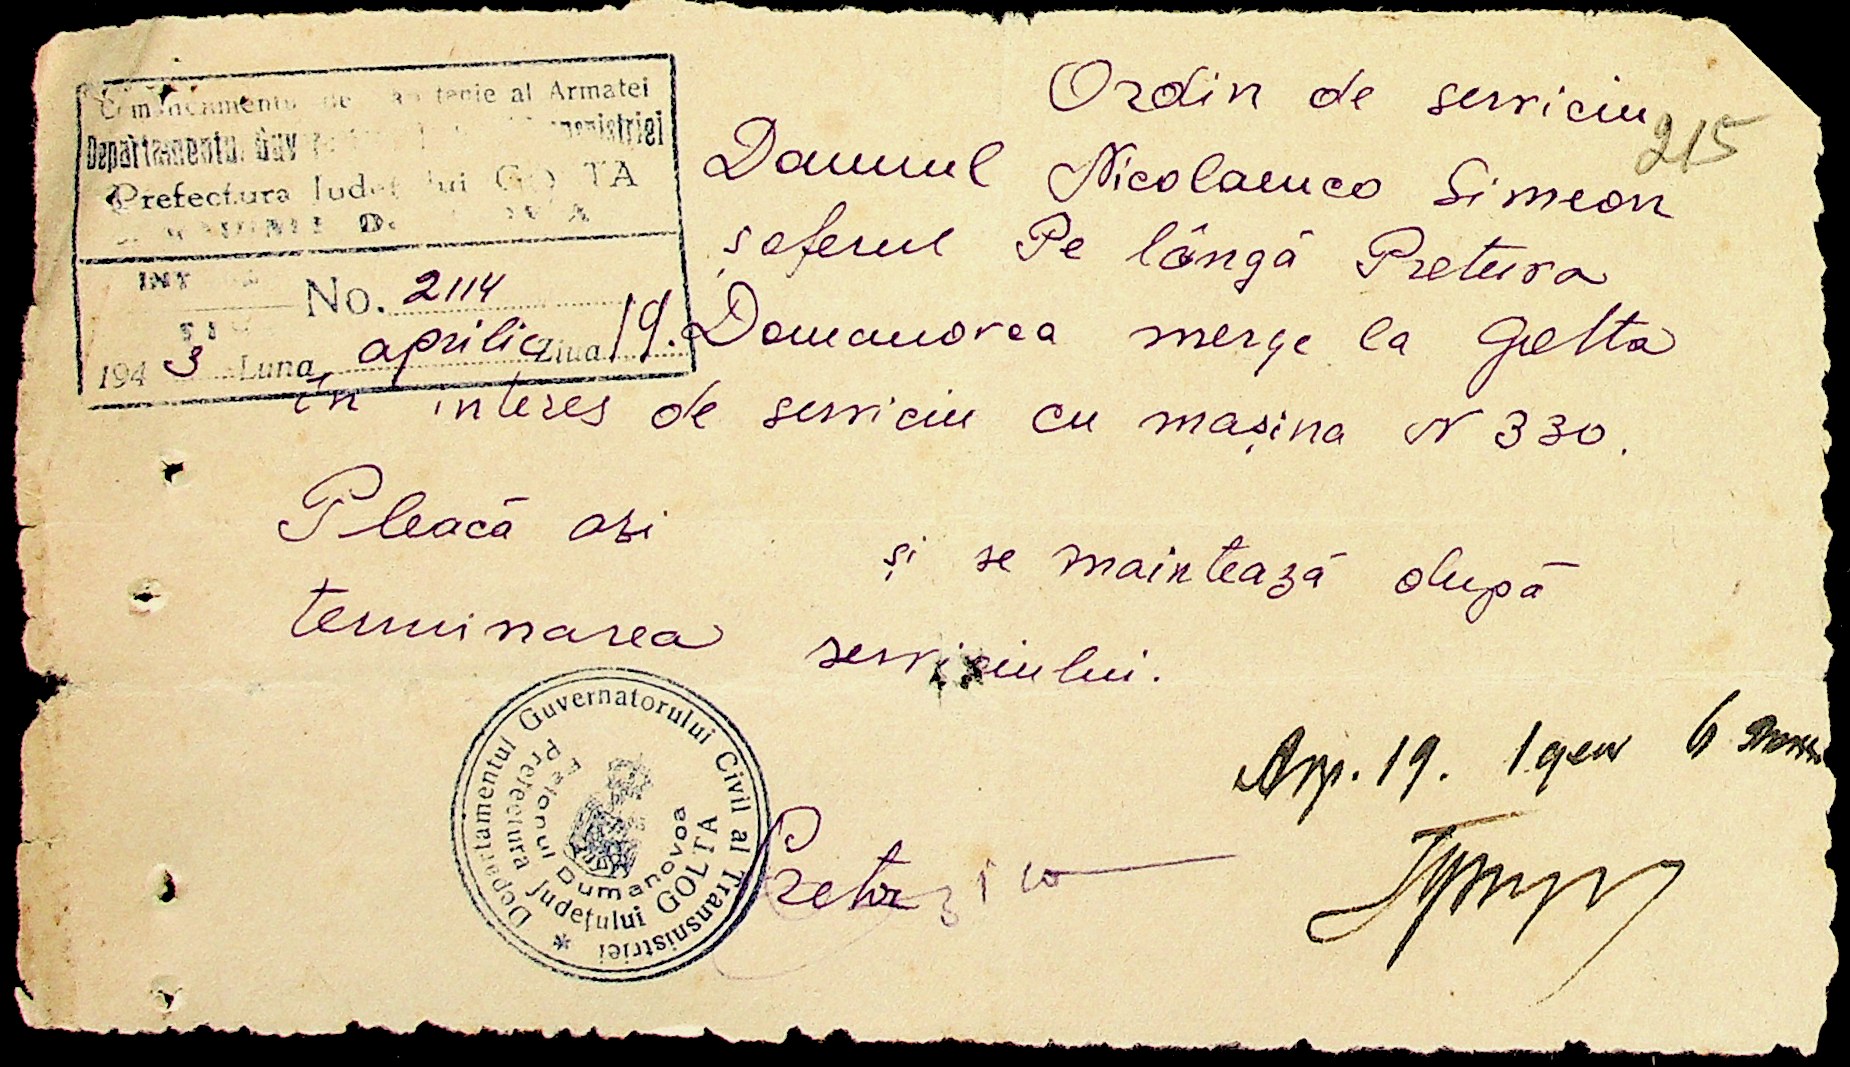 al Armatei
Departamentul
Prefectura Județului GOLTA
No. 2114
1943 Luna aprilie Ziua 19.
Ordin de serviciu
215
Domnul Nicolaenco Simeon
șoferul Pe lângă Pretura
Domanovca merge la Golta
în interes de serviciu cu mașina N 330.
Pleacă azi
și se maintează după
terminarea serviciului.
Departamentul Guvernatorului Civil al Transnistriei
Prefectura Județului GOLTA
Raionul Dumanovca
Pretor
19.